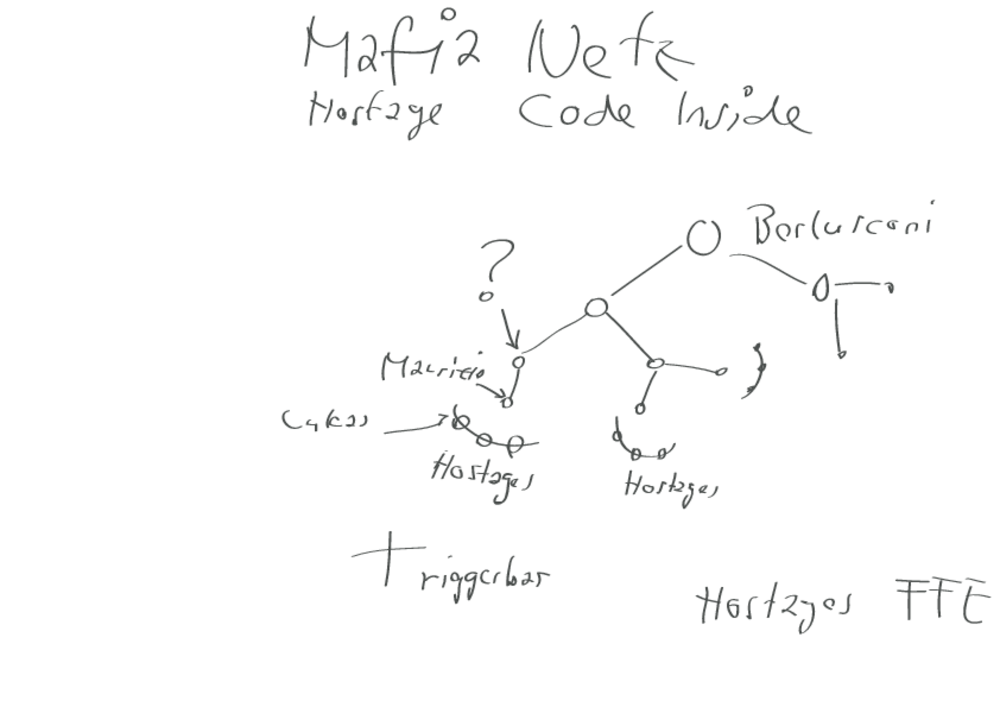 Mafia Netz
Hostage Code Inside
Berlusconi
?
Mauritio
Hostages
Hostages
Triggerbar
Hostages FFE